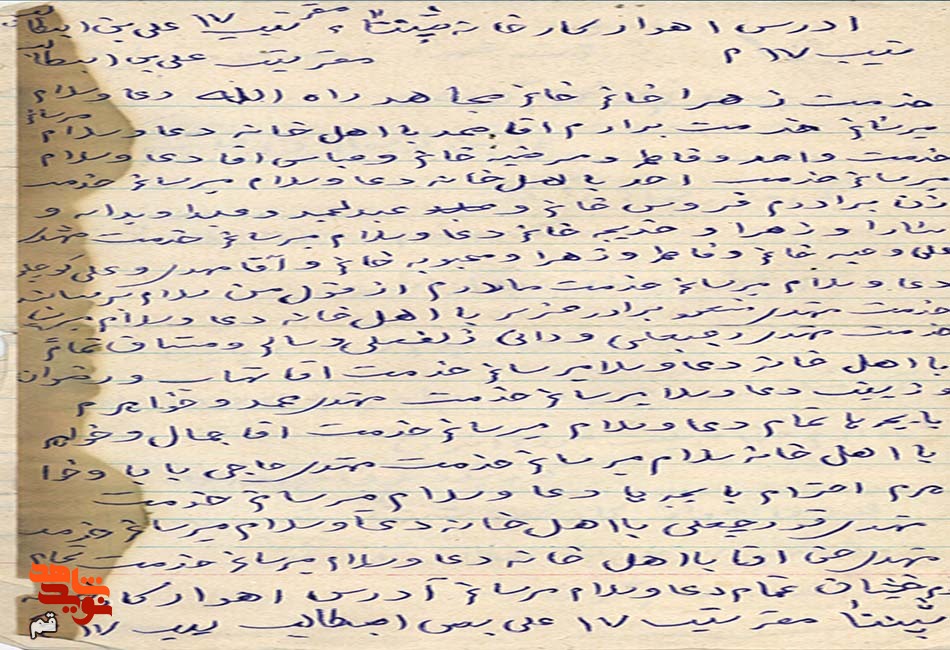 آدرس اهواز کارخانه مقر تیپ ۱۷ علی بن ابیطالب
تیپ ۱۷ م مقر تیپ علی بن ابیطالب
خدمت زهرا خانم خانم مجاهد راه الله دعا و سلام
میرسانم خدمت برادرم آقا محمد با اهل خانه دعا و سلام میرسانم
خدمت واحد و فاطمه و مرضیه خانم و عباس آقا دعا و سلام
میرسانم خدمت احمد با اهل خانه دعا و سلام میرسانم خدمت
زن برادرم فردوس خانم و عبدالحمید و
سارا و زهرا و خدیجه خانم دعا و سلام میرسانم خدمت مهدی
علی و خانم و فاطمه و زهرا و محبوبه خانم و آقا مهدی و علی کوچلو
دعا و سلام میرسانم خدمت مادرم از قول من سلام برسانید
خدمت مهدی برادر عزیز با اهل خانه دعا و سلام میرسانم
خدمت مهدی رجبعلی و دائی ذلفعلی و
با اهل خانه دعا و سلام میرسانم خدمت آقا
و دعا و سلام میرسانم خدمت مهدی محمد و خواهرم
با بچه ها تمام دعا و سلام میرسانم خدمت آقا جمال و خواهر
با اهل خانه سلام میرسانم خدمت مهدی حاجی بابا و خوا
هرم احترام با بچه ها دعا و سلام میرسانم خدمت
مهدی با اهل خانه دعا و سلام میرسانم خدمت
مهدی آقا با اهل خانه دعا و سلام میرسانم خدمت تمام
تمام دعا و سلام میرسانم آدرس اهواز
مقر تیپ ۱۷ علی بن ابیطالب تیپ ۱۷
نوید شاهد
قم